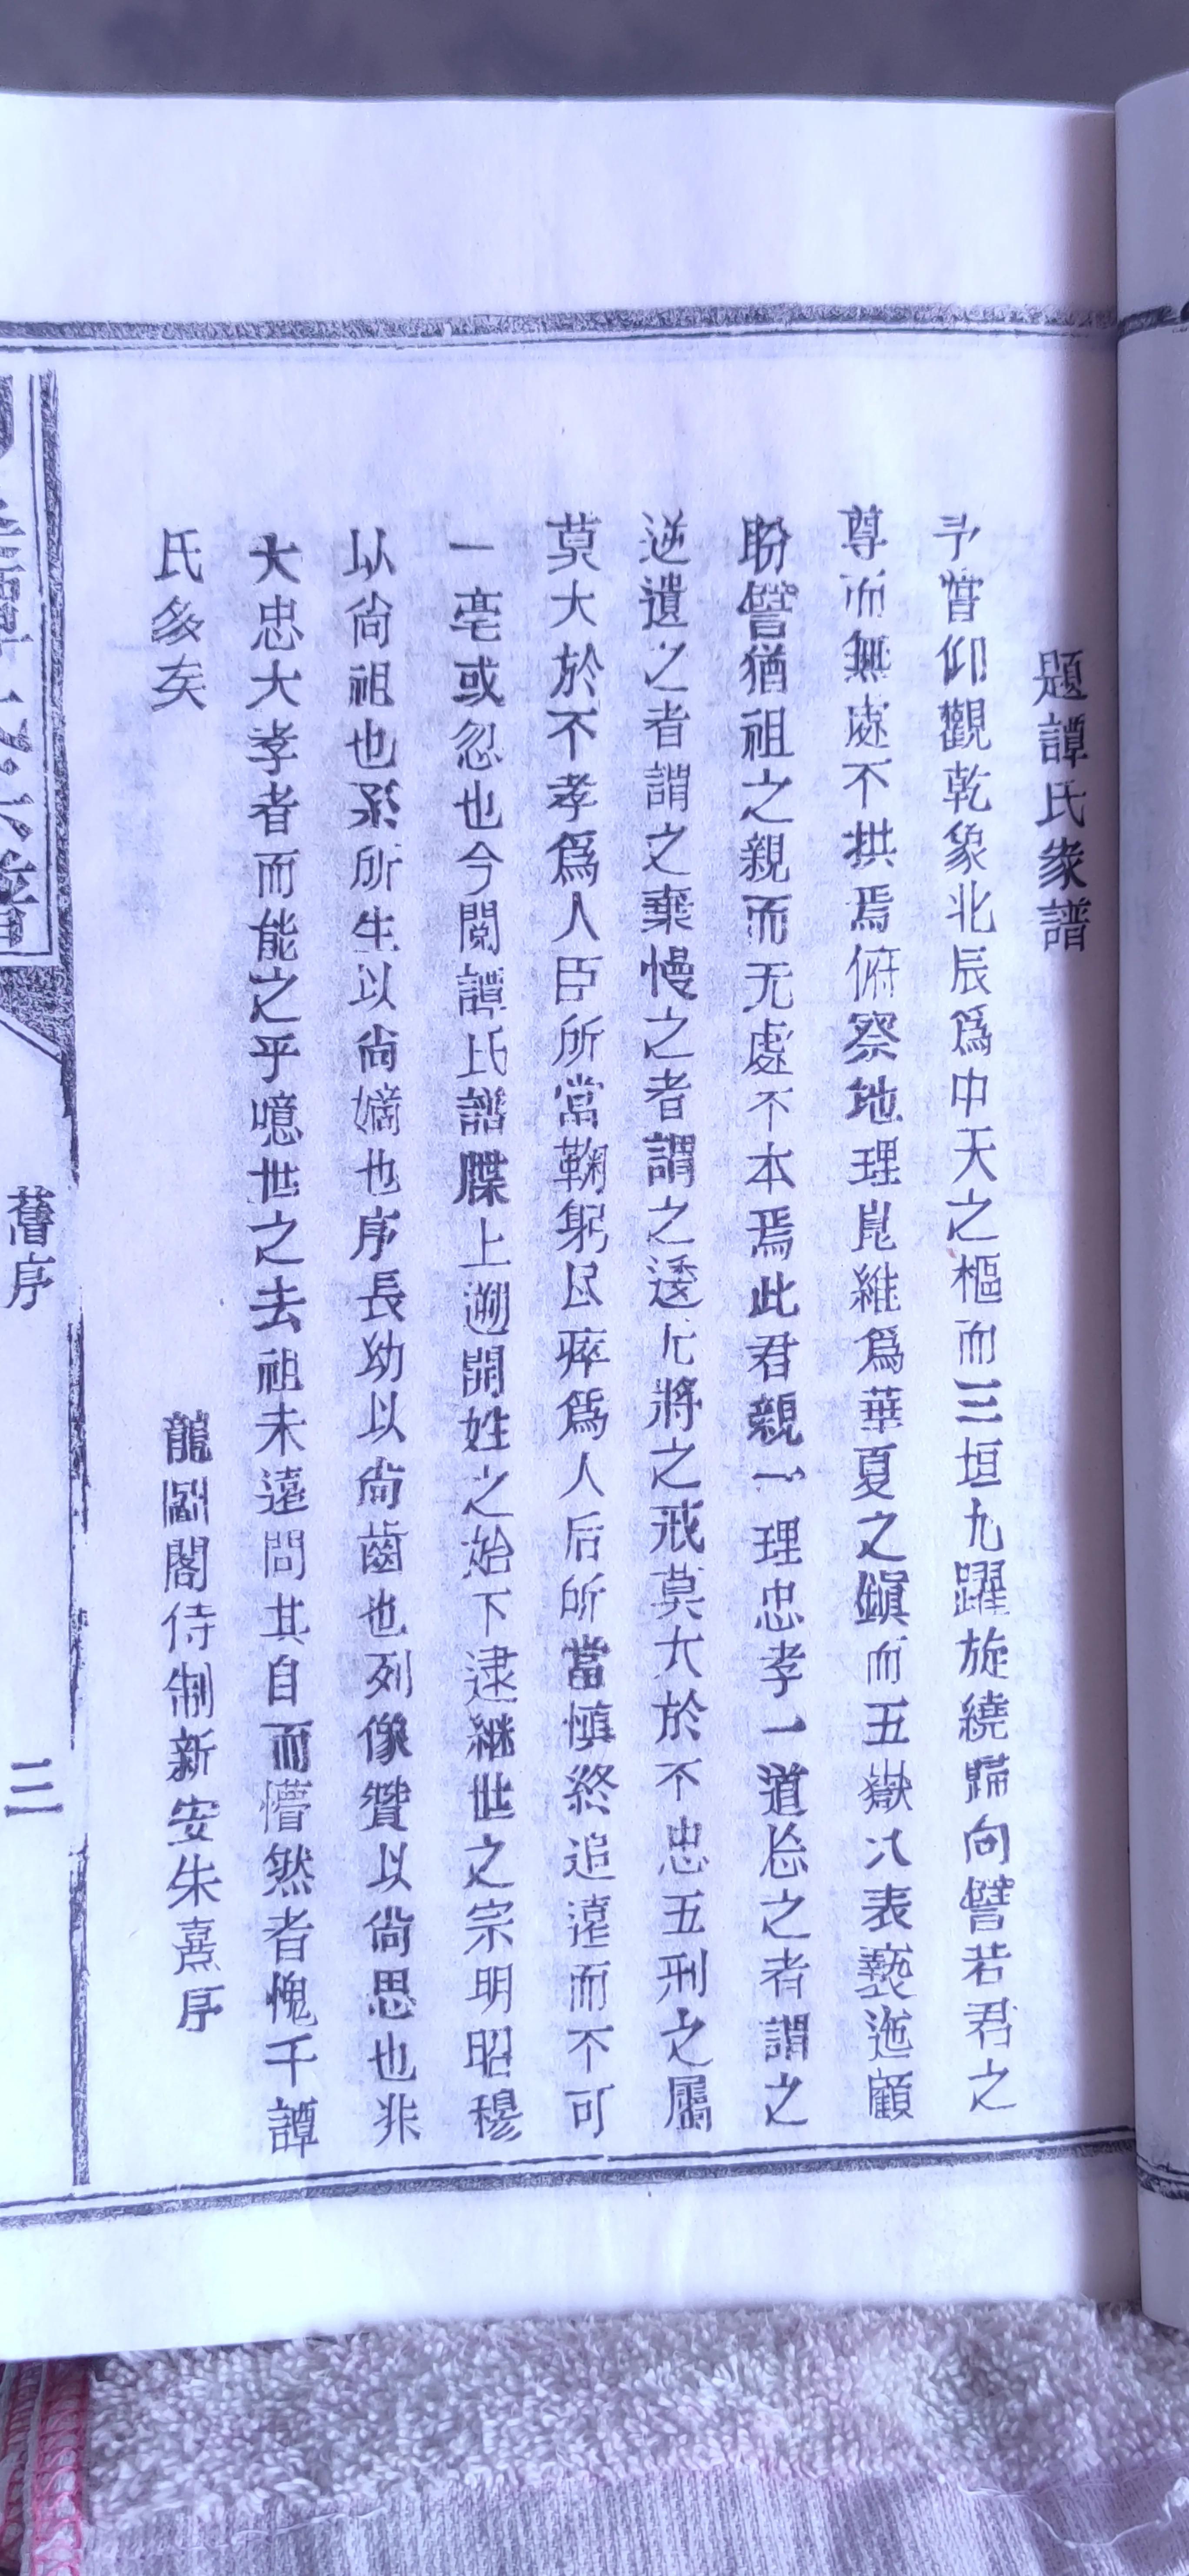 題譚氏家譜
予嘗仰觀乾象北辰爲中天之樞而三垣九躍旋繞歸向譬若君之
尊而無處不拱焉俯察地理崑維爲華夏之鎭而五嶽八表褻迤顧
盼譬猶祖之親而无處不本焉此君親一理忠孝一道忩之者謂之
逆遺之者謂之棄慢之者謂之逶尤將之戒莫大於不忠五刑之屬
莫大於不孝爲人臣所當鞠躬尽瘁爲人后所當慎終追遠而不可
一亳或忽也今閱譚氏譜牒上遡開姓之始下逮継世之宗明昭穆
以尙祖也系所生以尙嫡也序長幼以尙齒也列像贊以尙思也非
大忠大孝者而能之乎噫世之去祖未遠問其自而懵然者愧千譚
氏多矣
龍圖閣待制新安朱熹序
譚氏宗譜
舊序
二